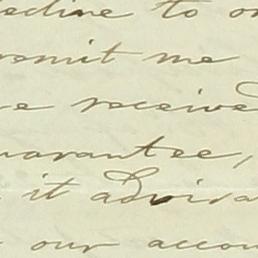 decline to
remit me
received
guarantee,
it advisa
our accou